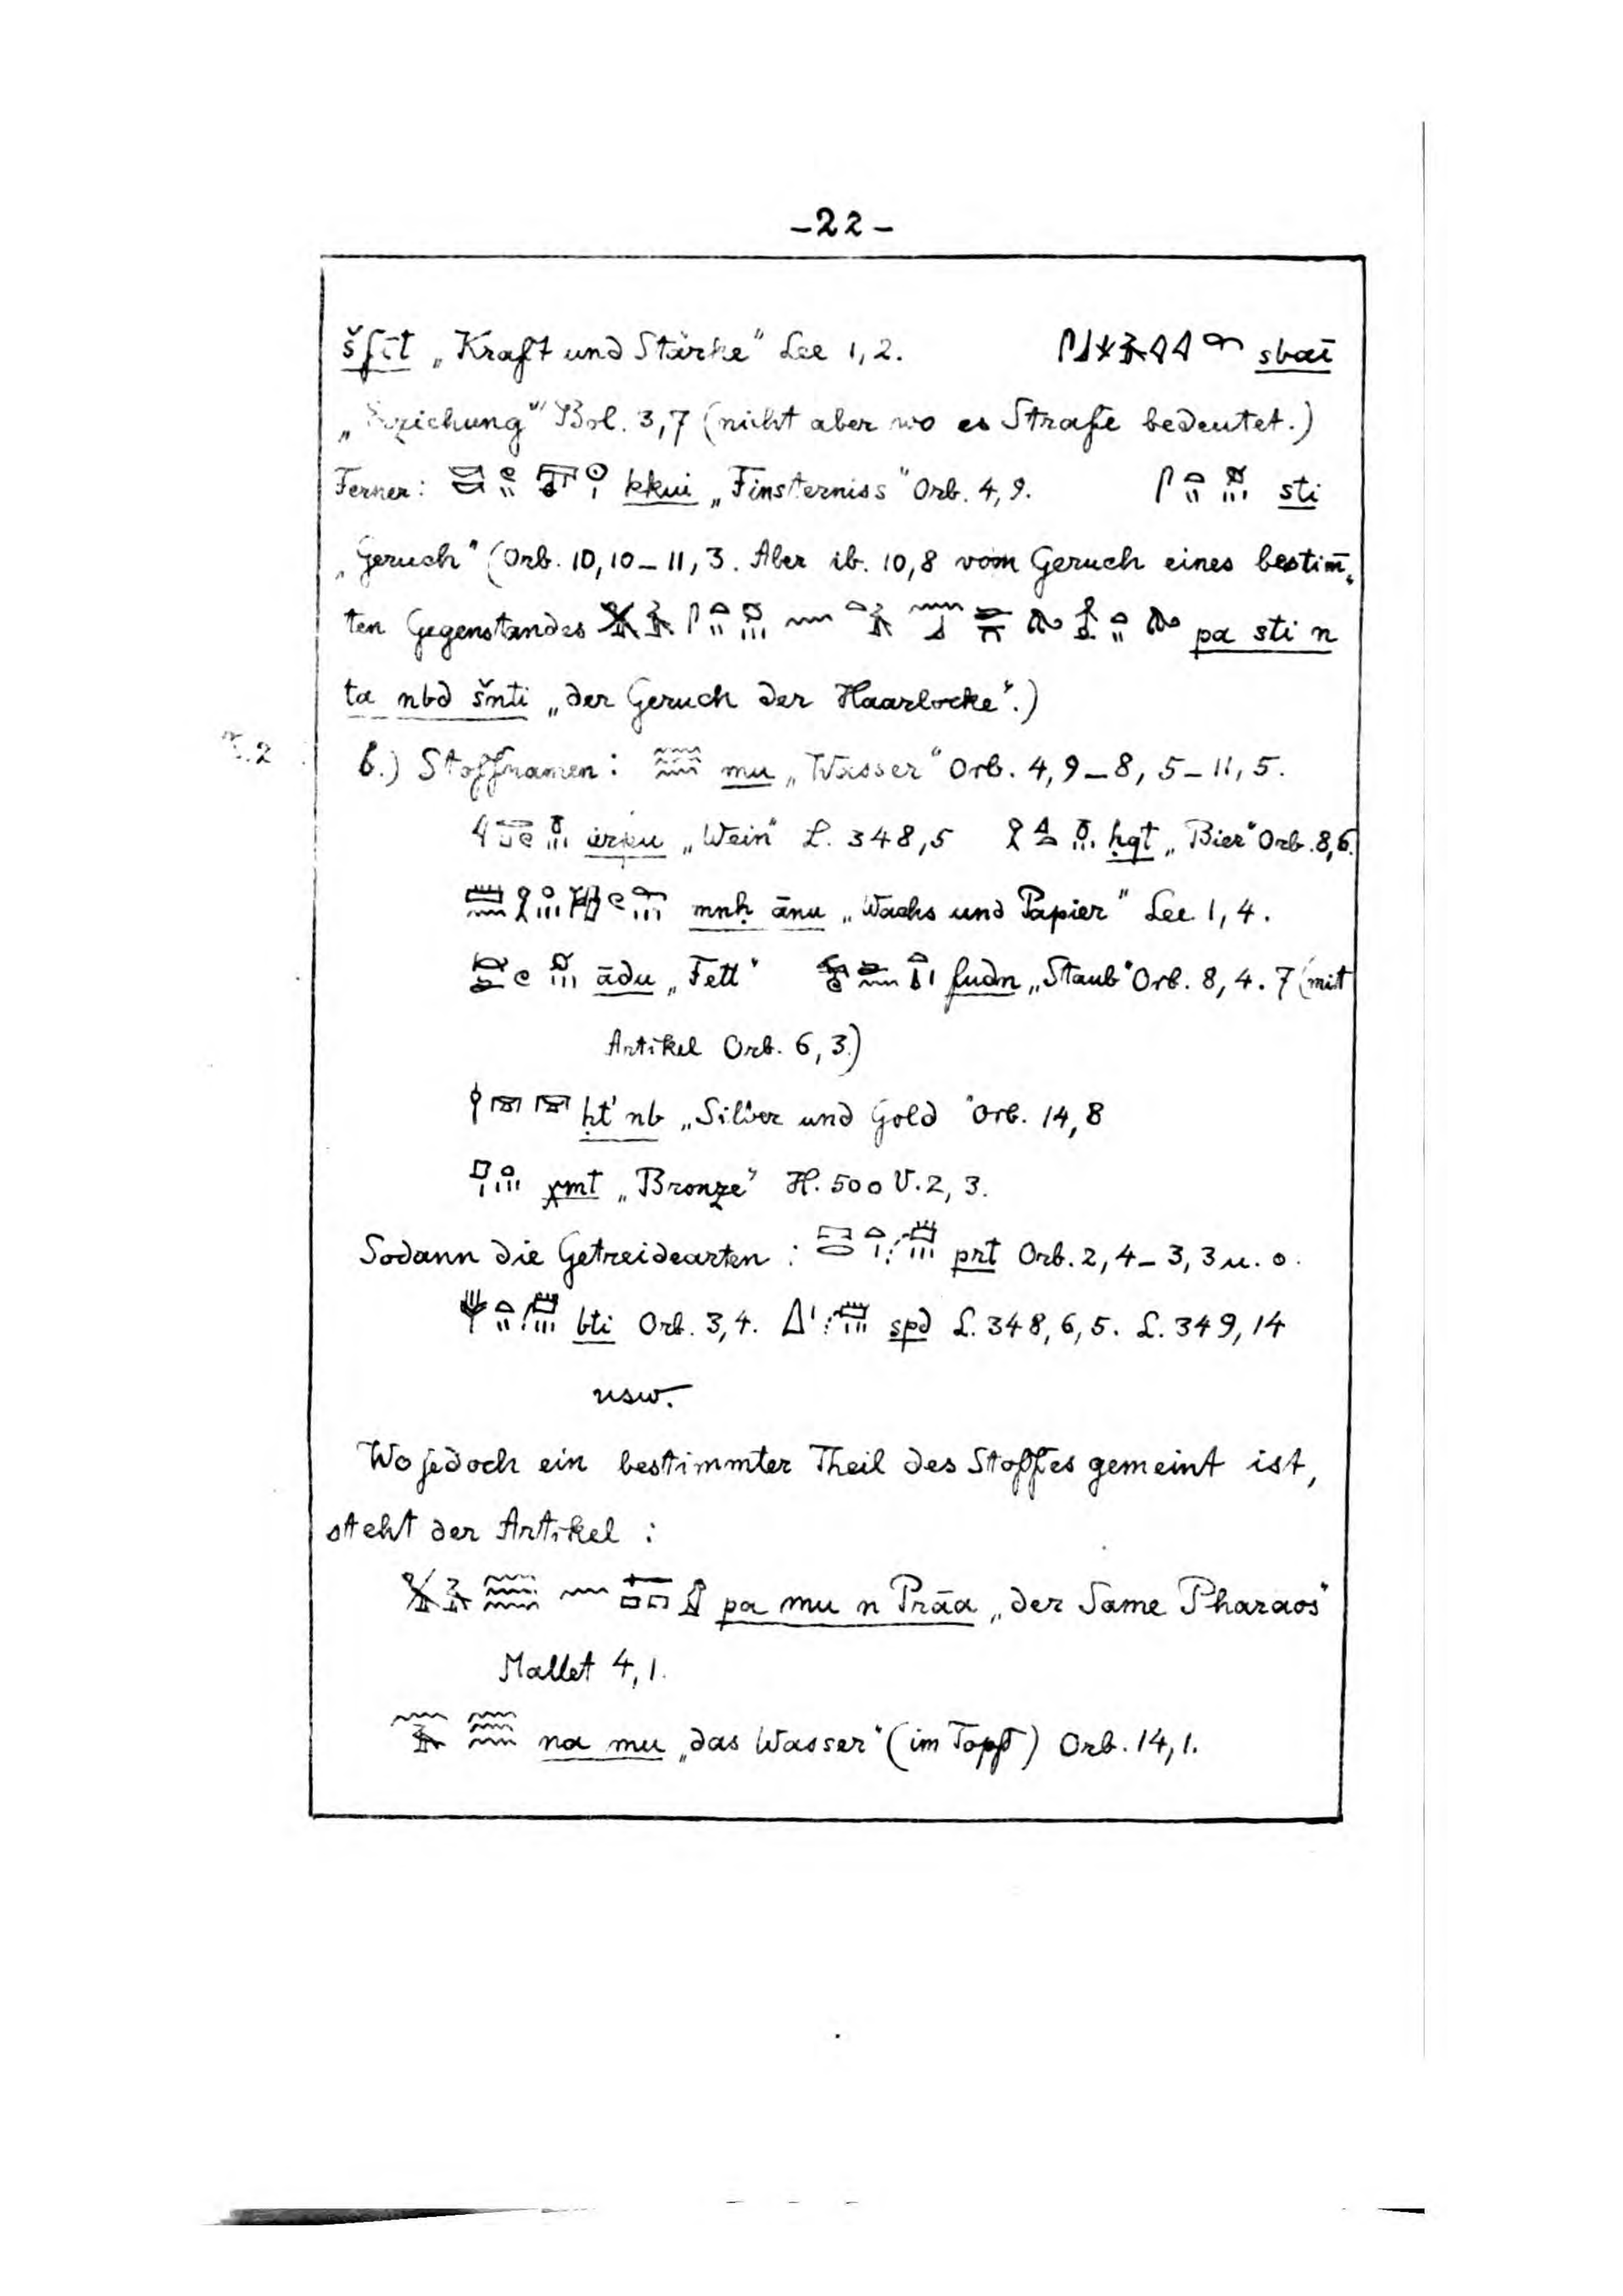 -22-
šfit „Kraft und Stärke“ Lee 1,2. sbai
Bol. 3,7 (nicht aber wo es Strafe bedeutet.)
Ferner: kkui „Finsterniss“ Orb. 4,9. sti
„Geruch“ (Orb. 10,10–11,3. Aber ib. 10,8 vom Geruch eines bestim̅-
ten Gegenstandes pa sti n
ta nbd šnti „der Geruch der Haarlocke“.)
b.) Stoffnamen: mu „Wasser“ Orb. 4,9–8,5–11,5.
„Wein“ L. 348,5 ḥqt „Bier“ Orb. 8,6.
mnḥ ānu „Wachs und Papier“ Lee 1,4.
ādu „Fett“ fudn „Staub“ Orb. 8,4.7 (mit
Artikel Orb. 6,3.)
ḥt' nb „Silber und Gold“ Orb. 14,8
χmt „Bronze“ H. 500 V. 2,3.
Sodann die Getreidearten: prt Orb. 2,4–3,3 u. o.
bti Orb. 3,4. spd L. 348,6,5. L. 349,14
usw.
Wo jedoch ein bestimmter Theil des Stoffes gemeint ist,
steht der Artikel:
pa mu n Prāa „der Same Pharaos“
Mallet 4,1.
na mu „das Wasser“ (im Topf) Orb. 14,1.